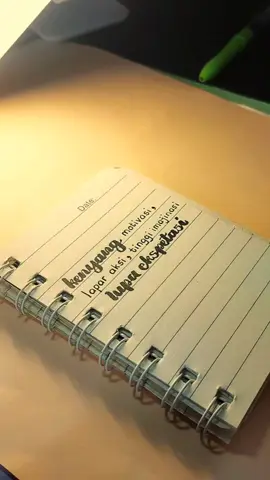 Date
kenyang motivasi,
lapar aksi, tinggi imajinasi
lupa ekspetasi